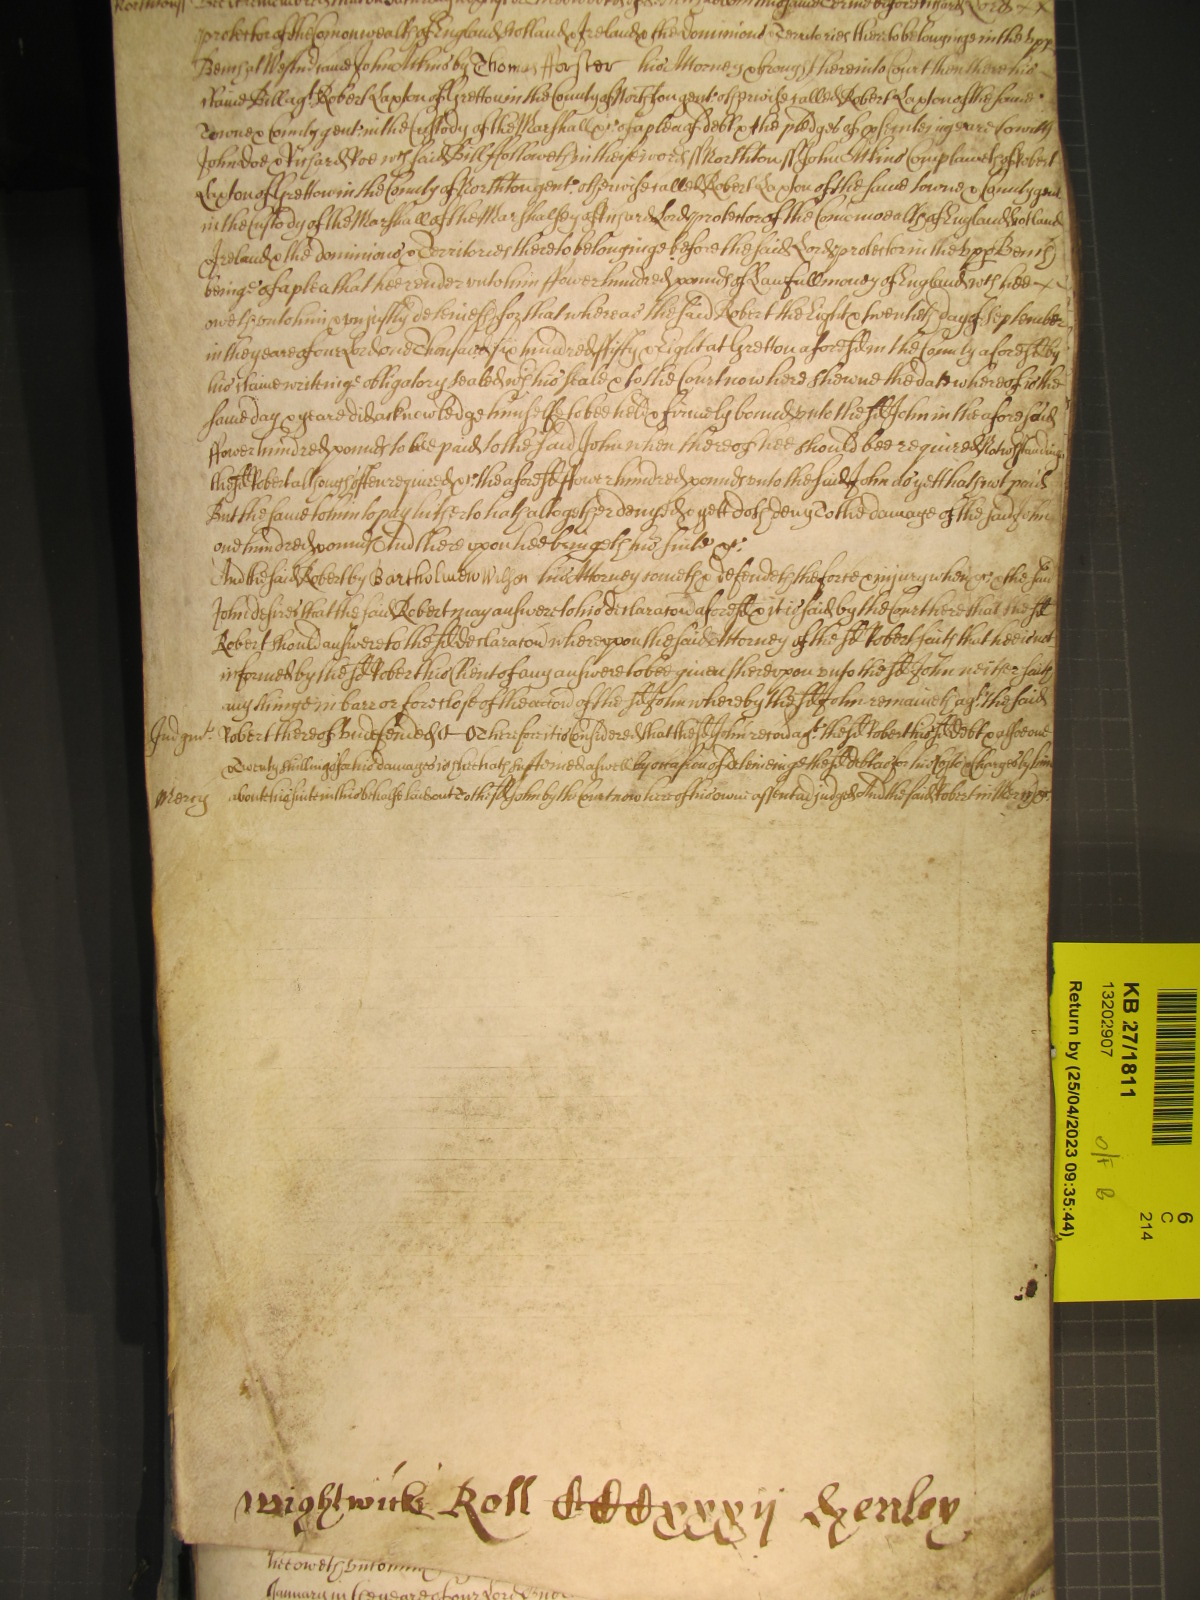 protector of the Comonwealth of England Scotland & Ireland & the Dominions & Territories thereto belonginge in the upp
Bench at Westm came John Atkins by Thomas Forster his Attorney & brought here into Court then there his
Robert Laxton of Gretton in the County of Northton gent otherwise called Robert Laxton of the same
Towne & County gent in the Custody of the Marshall &c of a plea of debt & the pledges of prosecuteinge are to witt
John Doe & Richard Roe wch said Bill followeth in these words ss Northton ss John Atkins Complaineth of Robert
Laxton of Gretton in the County of Northton gent otherwise called Robert Laxton of the same towne & County gent
in the Custody of the Marshall of the Marshalsey of Richard Lord protector of the Comonwealth of England Scotland
Ireland & the dominions & Territories thereto belonginge before the said Lord protector in the upp Bench
beinge of a plea that hee render unto him ffower hundred pounds of Lawfull money of England wch hee
oweth unto him & unjustly deteineth for that whereas the said Robert the Eight & twentieth day of September
in the yeare of our Lord one Thousand six hundred ffifty & Eight at Gretton aforesd in the County aforesd by
his certaine writeinge obligatory sealed wth his seale & to the Court now here shewne the date whereof is the
same day & yeare did acknowledge himselfe to bee held & firmely bound unto the sd John in the aforesaid
ffower hundred pounds to bee paid to the said John when thereof hee should bee required Notwthstandinge
the sd Robert although often required &c the aforesd ffower hundred pounds unto the said John as yett hath not paid
But the same to him to pay hitherto hath altogether denyed & yett doth deny To the damage of the said John
one hundred pounds And thereupon hee bringeth his suite &c
And the said Robert by Bartholmew Wilson his Attorney cometh & defendeth the force & injury when &c & the said
John desires that the said Robert may answere to his declaracon aforesd & it is said by the Court here that the sd
Robert should answere to the sd declaracon whereupon the said Attorney of the sd Robert saith that hee is not
informed by the sd Robert his Client of any answere to bee given thereupon unto the sd John neither saith
any thinge in barr or foreclose of the accon of the sd John whereby the sd John remaineth agt the said
Judgmt Robert thereof undefended &c Therefore it is Considered that the sd John recover agt the sd Robert his sd debt & alsoe one
& Twenty shillings for his damages wch hee hath susteyned aswell by occasion of deteineinge the sd debt as for his Costs & charges by him
Mercy about his suite in this behalfe laid out To the sd John by the Court now here of his owne assent adjudged And the said Robert in Mercy &c
Wightwicke Roll CCCxxxij Henley
hee oweth unto him
January in the yeare of our Lord one
KB 27/1811
13202907
Return by (25/04/2023 09:35:44)
6
C
214